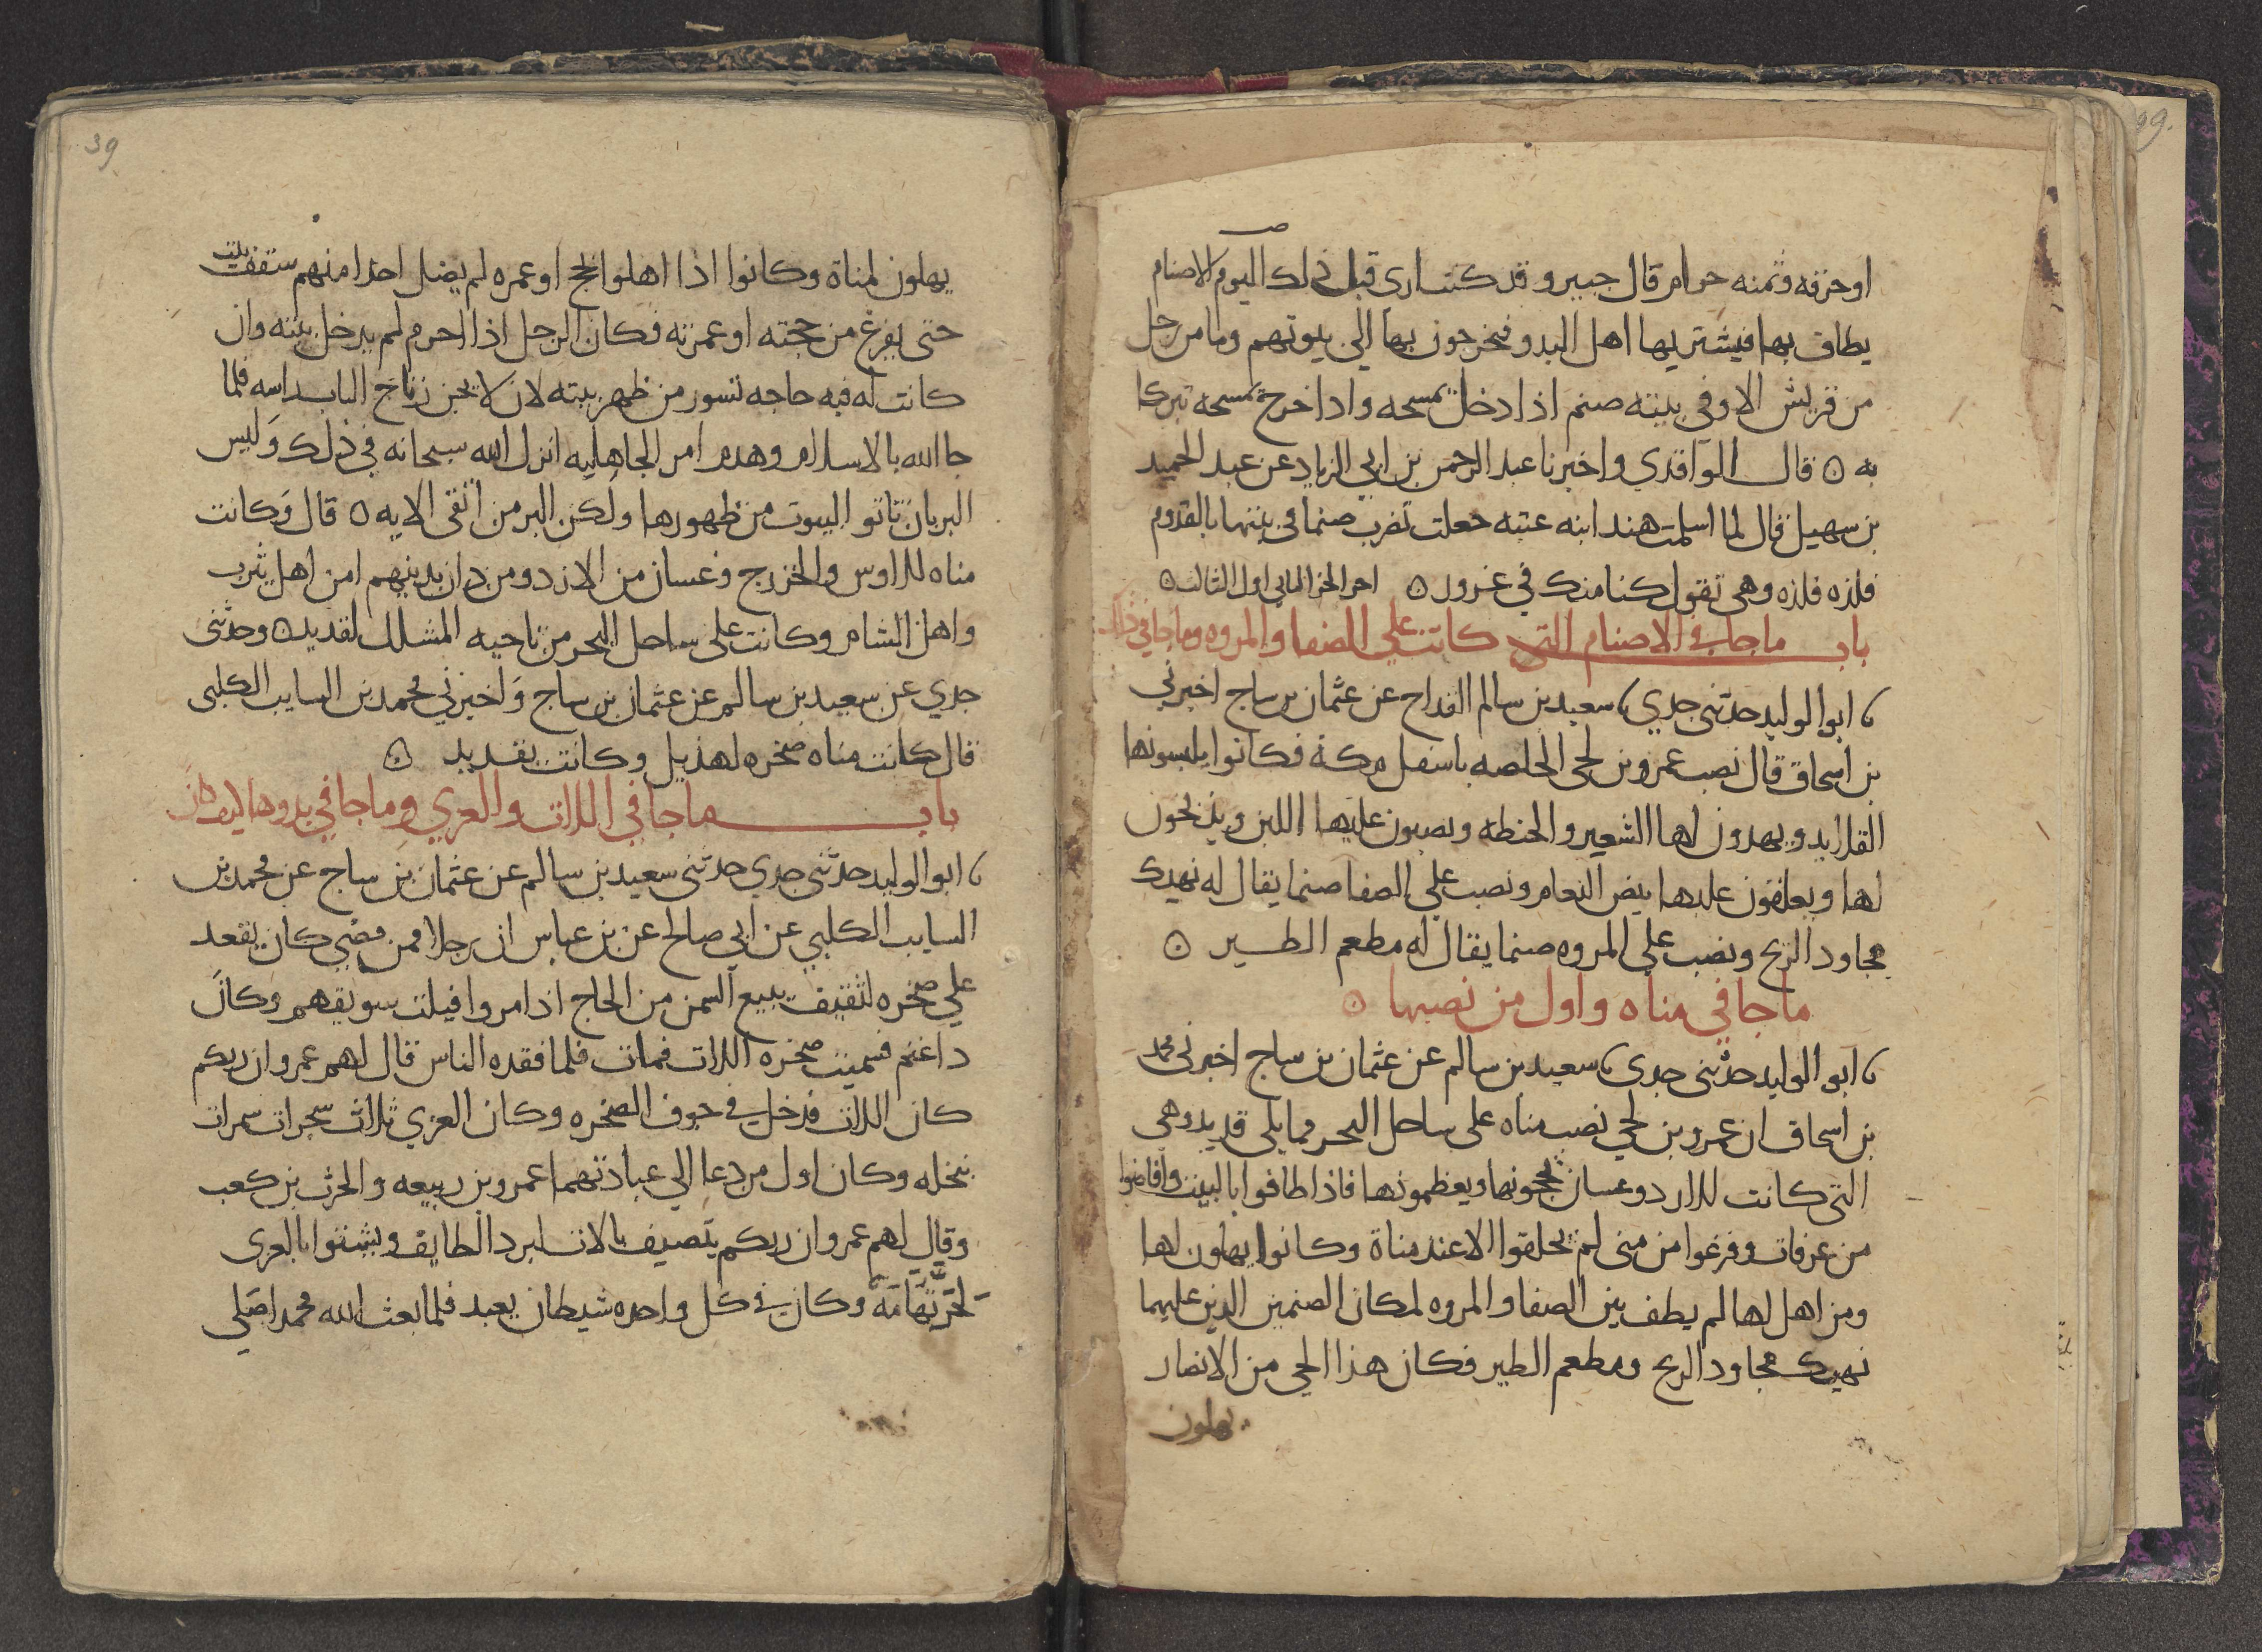 او حرقه وثمنه حرام قال جبير وقد كنت ارى قبل ذلك اليوم الاصنام
يطاف بها فيشتريها اهل البدو فيخرجون بها الى بيوتهم وما من رجل
من قريش الا وفي بيته صنم اذا دخل تمسحه واذا خرج تمسحه تبركا
به ٥ قال الواقدي واخبرنا عبد الرحمن بن ابي الزناد عن عبد الحميد
بن سهيل قال لما اسلمت هند ابنه عتبه جعلت تضرب صنما في بيتها بالقدوم
فلذه فلذه وهي تقول كنا منك في غرور ٥ اخر الجز الثاني اول الثالث ٥
باب ما جا في الاصنام التي كانت على الصفا والمروه وما جا في ذلك
ابو الوليد حدثني جدي سعيد بن سالم القداح عن عثمان بن ساج اخبرني
بن اسحاق قال نصب عمرو بن لحي الخلصه باسفل مكة فكانوا يلبسونها
القلايد ويهدون لها الشعير والحنطه ويصبون عليها اللبن ويذبحون
لها ويعلقون عليها بيض النعام ونصب على الصفا صنما يقال له نهيك
مجاود الريح ونصب على المروه صنما يقال له مطعم الطير ٥
ما جا في مناه واول من نصبها ٥
ابو الوليد حدثني جدي سعيد بن سالم عن عثمان بن ساج اخبرني محمد
بن اسحاق ان عمرو بن لحي نصب مناه على ساحل البحر مما يلي قديد وهي
التي كانت للازد وغسان يحجونها ويعظمونها فاذا طافوا بالبيت وافاضوا
من عرفات وفرغوا من منى لم يحلقوا الا عند مناة وكانوا يهلون لها
ومن اهل لها لم يطف بين الصفا والمروه لمكان الصنمين الذين عليهما
نهيك مجاود الريح ومطعم الطير فكان هذا الحي من الانصار
يهلون
39
يهلون لمناة وكانوا اذا اهلوا بحج او عمره لم يضل احدا منهم سقف بيت
حتى يفرغ من حجته او عمرته فكان الرجل اذا احرم لم يدخل بيته وان
كانت له فيه حاجه تسور من ظهر بيته لان لا يجن رتاج الباب راسه فلما
جا الله بالاسلام وهدم امر الجاهليه انزل الله سبحانه في ذلك وليس
البر بان تاتو البيوت من ظهورها ولكن البر من اتقى الايه ٥ قال وكانت
مناه للاوس والخزرج وغسان من الازد ومن دان بدينهم من اهل يثرب
واهل الشام وكانت على ساحل البحر من ناحيه المشلل لقديد ٥ وحدثني
جدي عن سعيد بن سالم عن عثمان بن ساج واخبرني محمد بن السايب الكلبي
قال كانت مناه صخره لهذيل وكانت بقديد ٥
باب ما جا في اللات والعزي وما جا في بدوها كيف كان
ابو الوليد حدثني جدي حدثني سعيد بن سالم عن عثمان بن ساج عن محمد بن
السايب الكلبي عن ابي صالح عن بن عباس ان رجلا ممن مضي كان يقعد
علي صخره لثقيف يبيع السمن من الحاج اذا مروا فيلت سويقهم وكان
ذا غنم فسميت صخره اللات فمات فلما فقده الناس قال لهم عمرو ان ربكم
كان اللات فدخل في جوف الصخره وكان العزي ثلاث شجرات سمرات
بنخله وكان اول من دعا الي عبادتهما عمرو بن ربيعه والحرث بن كعب
وقال لهم عمرو ان ربكم يتصيف بالات لبرد الطايف ويشتوا بالعزى
لحر تهامه وكان في كل واحده شيطان يعبد فلما بعث الله محمدا صلي